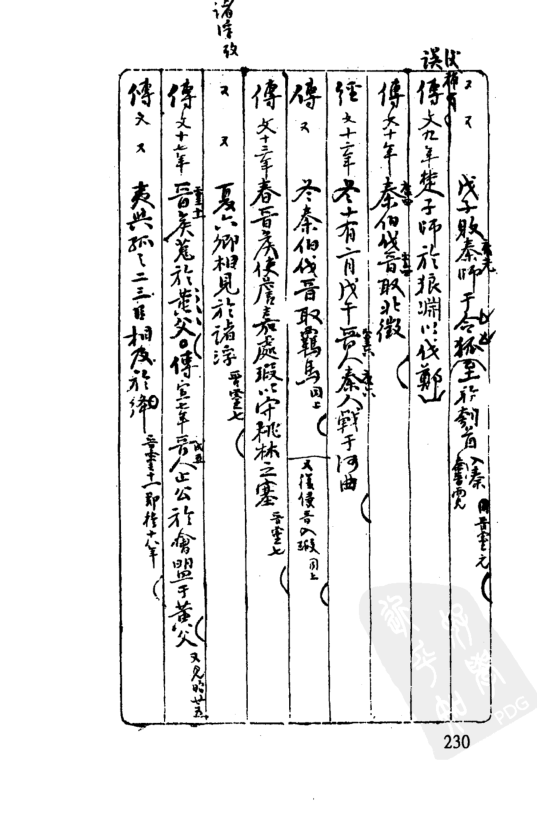 又 又 戊子敗秦師于令狐至於刳首 入秦
傳 文九年楚子師於狼淵以伐鄭
傳 文十年 秦伯伐晉取北徵
經 文十二年 冬十有二月戊午晉人秦人戰于河曲
傳 又 冬秦伯伐晉取羈馬 同上 又復侵晉入瑕 同上
傳 文十三年 春晉侯使詹嘉處瑕以守桃林之塞 晉靈七
又 又 夏六卿相見於諸浮 晉靈七
傳 文十七年 晉侯蒐於黃父 傳宣七年晉人止公於會盟于黃父 又見昭廿五
傳 文 又 夷與孤之二三臣相及於絳 晉靈十一 即
諸浮攷
誤
230
PDG